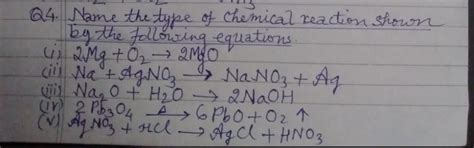 Q4. Name the type of chemical reaction shown
by the following equations.
(i) 2Mg + O₂ → 2MgO
(ii) Na + AgNO₃ → NaNO₃ + Ag
(iii) Na₂O + H₂O → 2NaOH
(iv) 2 Pb₃O₄ —Δ→ 6PbO + O₂ ↑
(v) AgNO₃ + HCl → AgCl + HNO₃